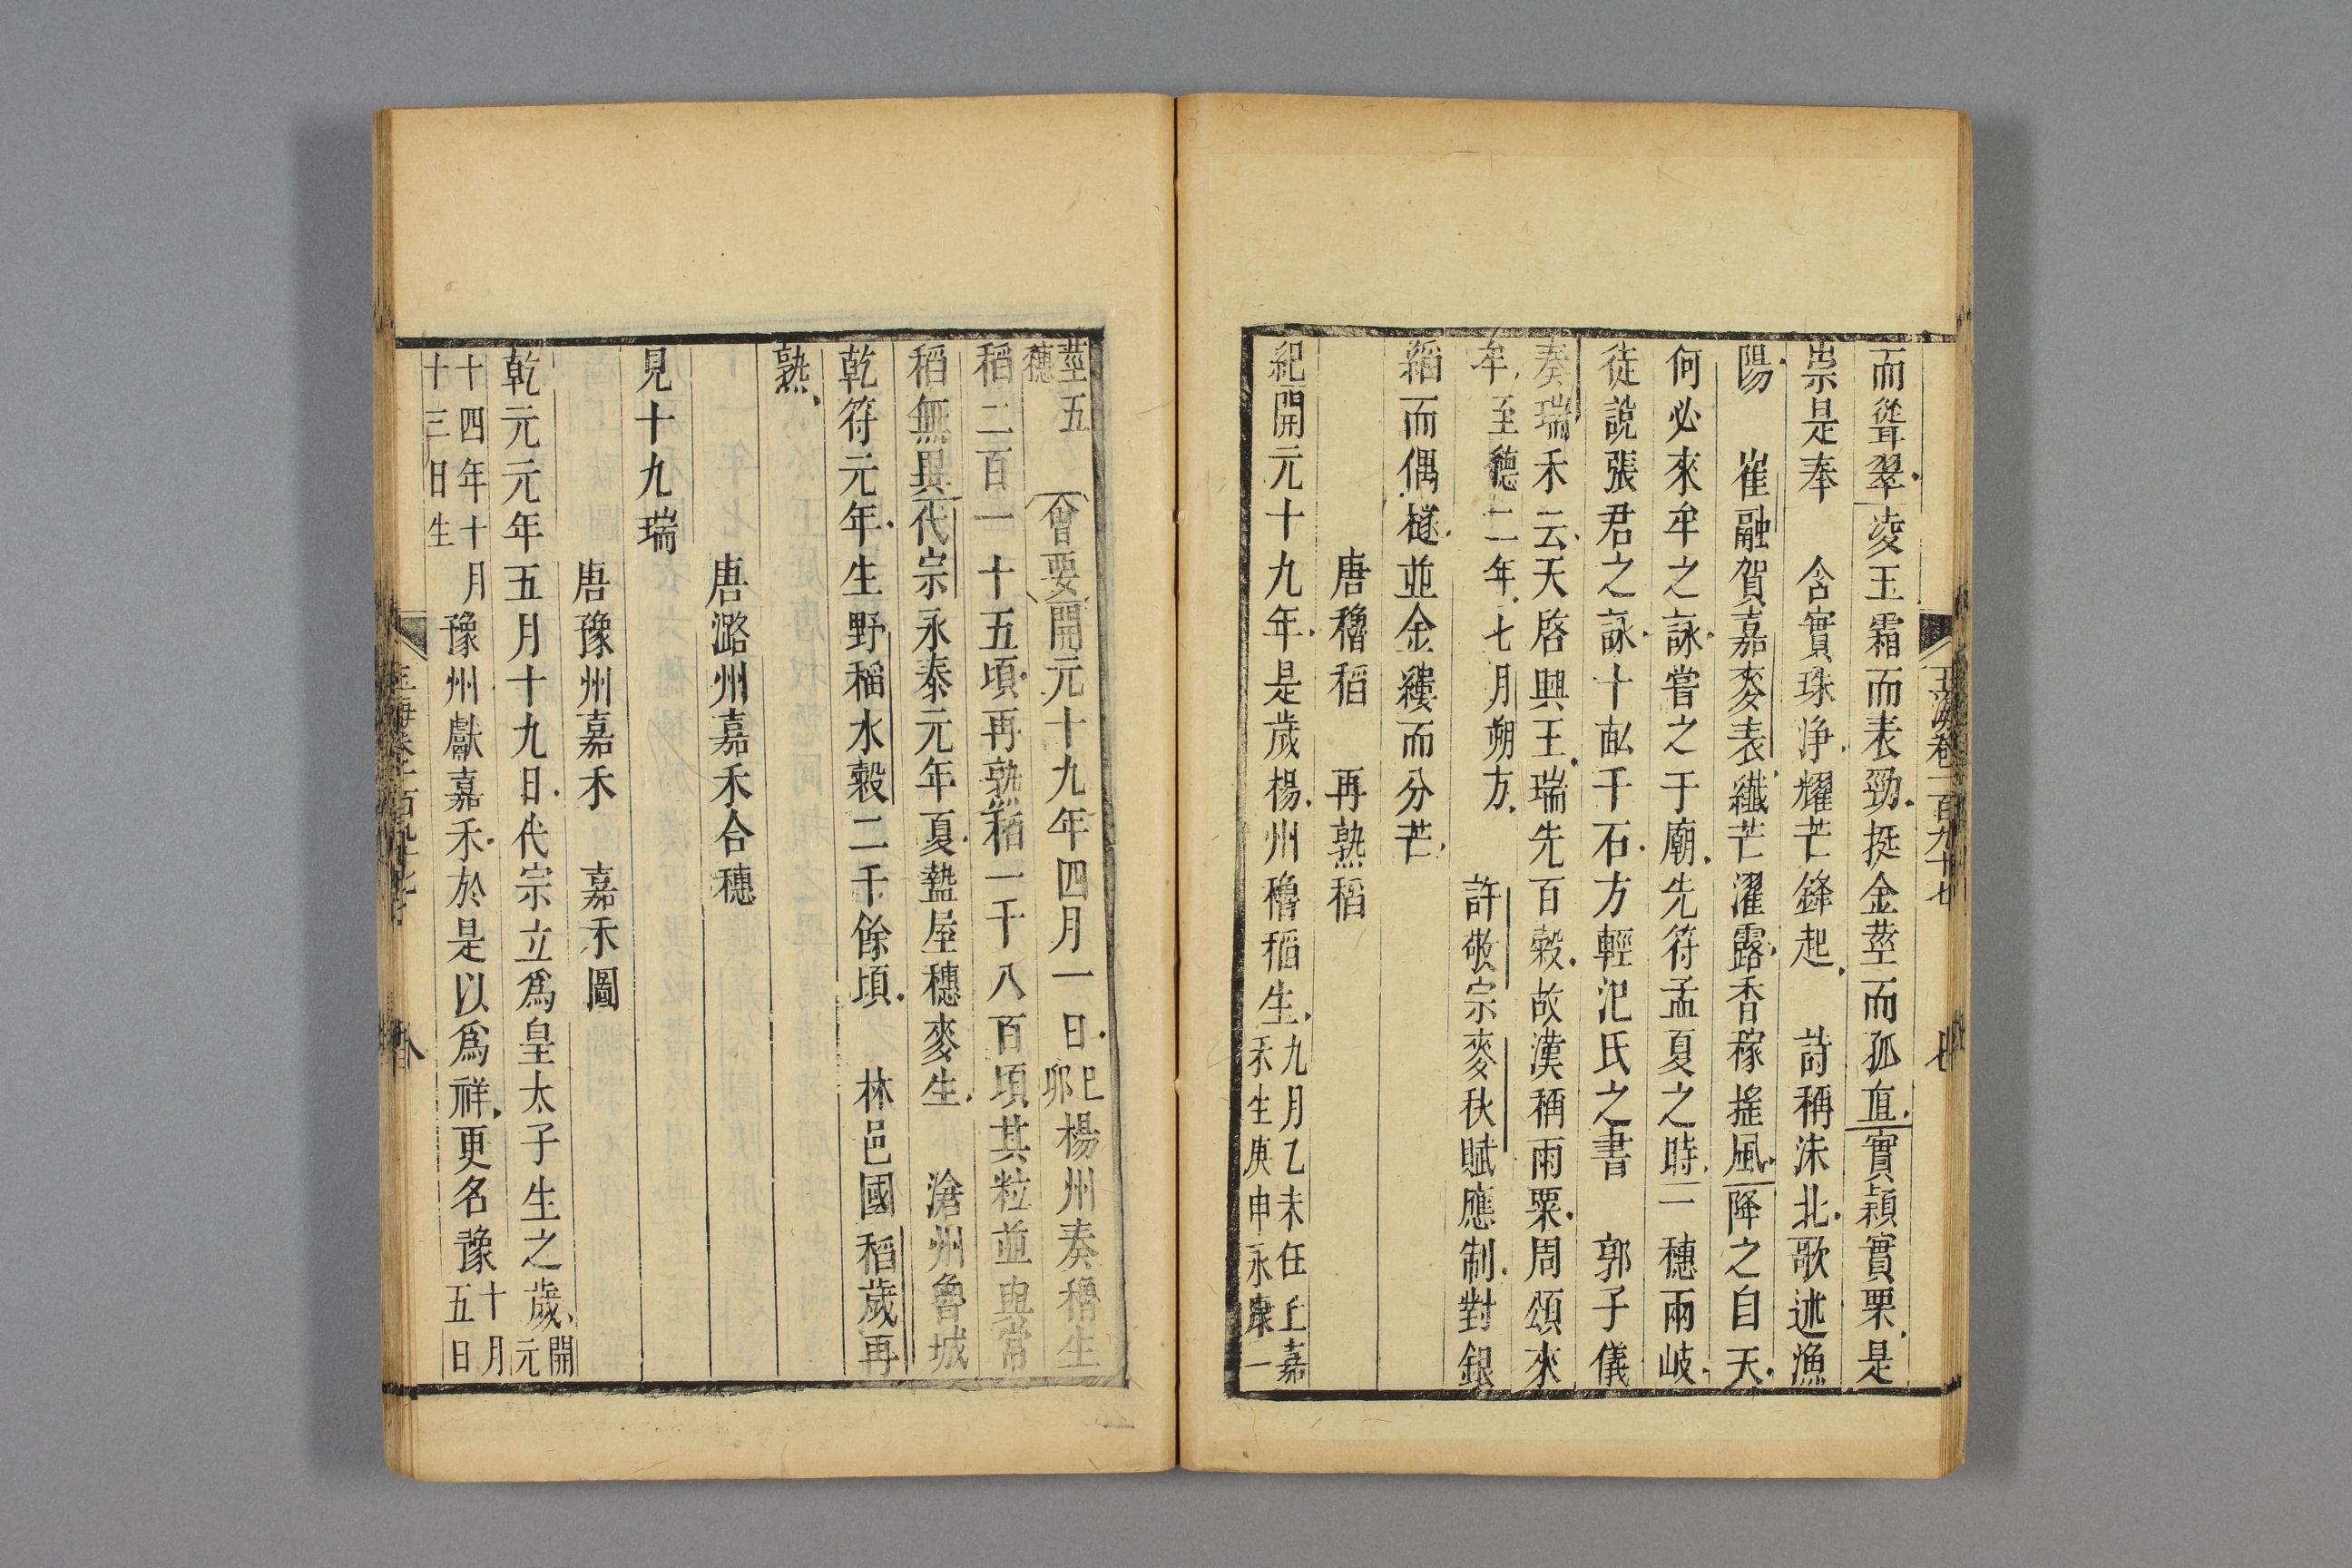 玉海卷二百九十七
七
而聳翠凌玉霜而表勁挺金莖而孤直實穎實栗是
崇是奉　含實珠淨耀芒鋒起　詩稱沬北歌述漁
陽　崔融賀嘉麥表纖芒濯露香稼搖風降之自天
何必來牟之詠嘗之于廟先符孟夏之時一穗兩岐
徒說張君之詠十畝千石方輕氾氏之書　郭子儀
奏瑞禾云天啓興王瑞先百穀故漢稱雨粟周頌來
牟至德二年七月朔方　許敬宗麥秋賦應制對銀
稻而偶檖並金縷而分芒
唐穭稻　再熟稻
紀開元十九年是歲楊州穭稻生九月乙未任丘嘉禾生庚申永康一
莖五穗　會要開元十九年四月一日己卯楊州奏穭生
稻二百一十五頃再熟稻一千八百頃其粒並與常
稻無異代宗永泰元年夏盩厔穗麥生　滄州魯城
乾符元年生野稻水穀二千餘頃　林邑國稻歲再
熟
唐潞州嘉禾合穗
見十九瑞
唐豫州嘉禾　嘉禾圖
乾元元年五月十九日代宗立爲皇太子生之歲開元
十四年十月十三日生豫州獻嘉禾於是以爲祥更名豫十月五日
八